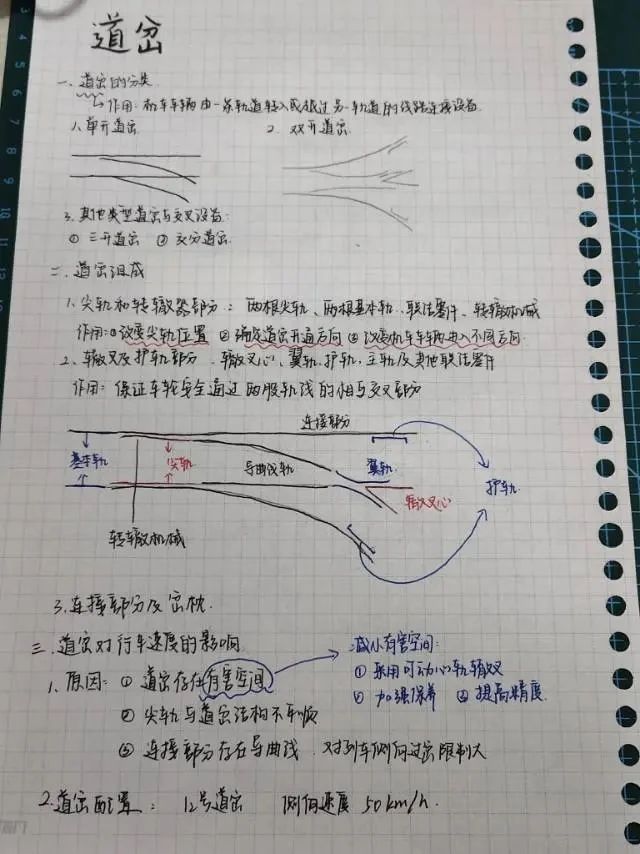 道岔
一、道岔的分类
作用:机车车辆由一条轨道转入或越过另一轨道的线路连接设备.
1、单开道岔 2、双开道岔
3、其他类型道岔与交叉设备:
① 三开道岔 ② 交分道岔
二、道岔组成
1、尖轨和转辙器部分:两根尖轨、两根基本轨、联结零件、转辙机械
作用:①改变尖轨位置 ②确定道岔开通方向 ③改变机车车辆由不同方向
2、辙叉及护轨部分:辙叉心、翼轨、护轨、主轨及其他联结零件
作用:保证车轮安全通过两股轨线的相互交叉部分
连接部分
基本轨 尖轨 导曲线轨 翼轨 护轨
辙叉心
转辙机械
3.连接部分及岔枕.
三、道岔对行车速度的影响
减小有害空间:
1、原因:①道岔存在有害空间 ①采用可动心轨辙叉
②加强保养 ③提高精度
② 尖轨与道岔结构不平顺
③ 连接部分存在导曲线,对列车侧向过岔限制大
2.道岔配置: 12号道岔 侧向速度 50km/h.